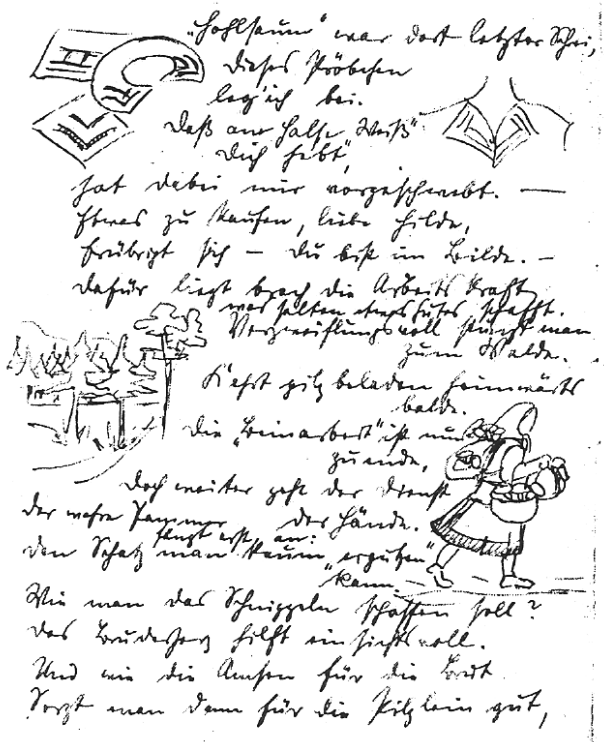 „Hohlsaum“ war dort letzter Schrei,
dieses Pröbchen
leg' ich bei.
Daß am Halse Weiß
Dich hebt,
hat dabei mir vorgeschwebt. —
Etwas zu kaufen, liebe Hilde,
Erübrigt sich — Du bist im Bilde. —
Dafür liegt brach die Arbeitskraft,
was selten etwas Gutes schafft.
Verzweiflungsvoll stürzt man
zum Walde.
Kehrt pilzbeladen heimwärts
balde.
Die „Beinarbeit“ ist nun
zuende,
Doch weiter geht der Dienst
der Hände.
Der wahre Jammer
fängt erst an:
Den Schatz man kaum „erputzen“
kann.
Wie man das Schnippeln schaffen soll?
Das Bruderherz hilft einsichtsvoll.
Und wie die Amsen für die Brut
Sorgt man dann für die Pilzlein gut,